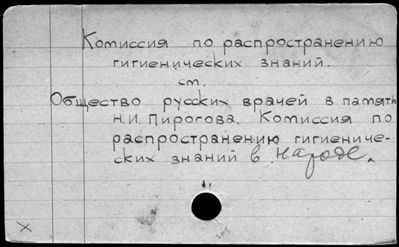 Комиссия по распространению
гигиенических знаний.
см.
Общество русских врачей в память
Н.И. Пирогова. Комиссия по
распространению гигиениче-
ских знаний в народе.